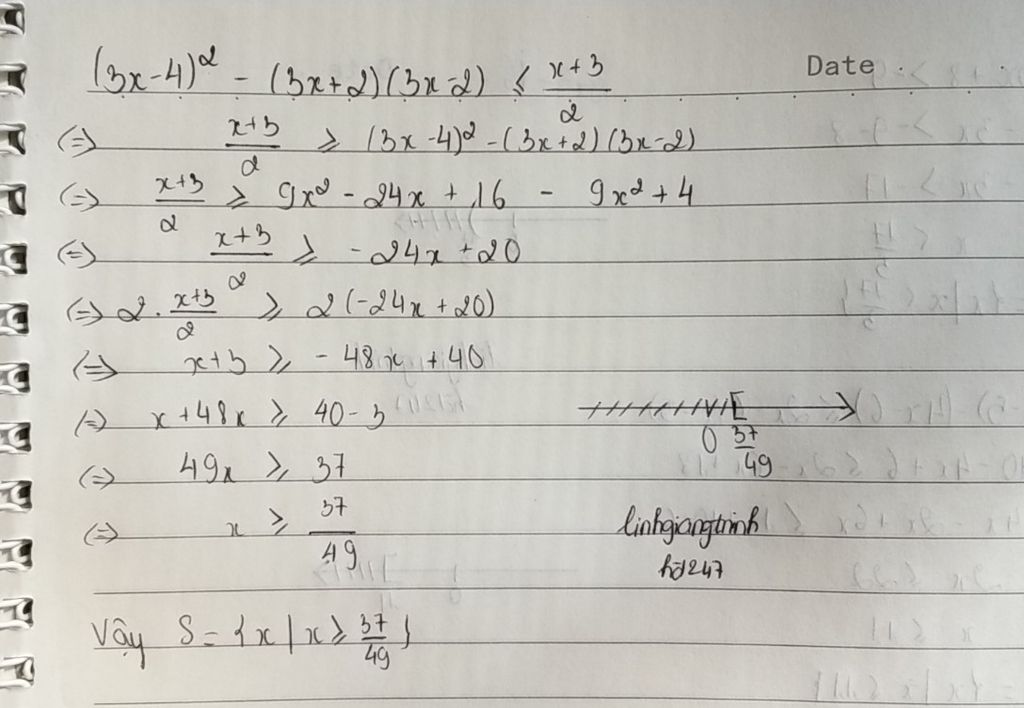 (3x-4)² - (3x+2)(3x-2) ≤ (x+3)/2
Date
(=) (x+3)/2 ≥ (3x-4)² - (3x+2)(3x-2)
(=) (x+3)/2 ≥ 9x² - 24x + 16 - 9x² + 4
(=) (x+3)/2 ≥ -24x + 20
(=) 2 . (x+3)/2 ≥ 2(-24x + 20)
(=) x+3 ≥ -48x + 40
(=) x + 48x ≥ 40 - 3
(=) 49x ≥ 37
0 37/49
(=) x ≥ 37/49
linhgiangtrinh
hd247
Vậy S = {x | x ≥ 37/49}